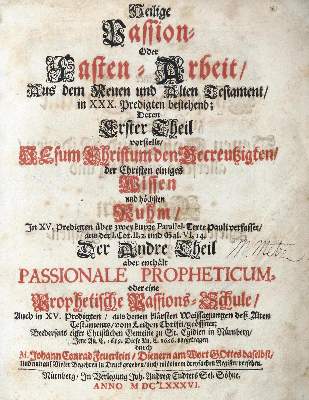 Heilige
Passion-
Oder
Fasten-Arbeit/
Aus dem Neuen und Alten Testament/
in XXX. Predigten bestehend;
Deren
Erster Theil
vorstellt/
JEsum Christum den Gecreutzigten/
der Christen einiges
Wissen
und höchsten
Ruhm/
In XV. Predigten über zwey kurtze Parallel-Texte Pauli verfasset/
aus der I. Cor. II, 2. und Gal. VI, 14.
Der Andre Theil
aber enthält
PASSIONALE PROPHETICUM.
oder eine
Prophetische Passions-Schule/
Auch in XV. Predigten / aus denen klärsten Weissagungen deß Alten
Testaments/ vom Leiden Christi/ geöffnet;
Bederseits einer Christlichen Gemeine zu St. Egidien in Nürnberg/
durch
M. Johann Conrad Feuerlein/ Dienern am Wort GOttes daselbst/
Nürnberg/ In Verlegung Joh. Andreæ Endters Sel. Söhne.
ANNO M DC LXXXVI.